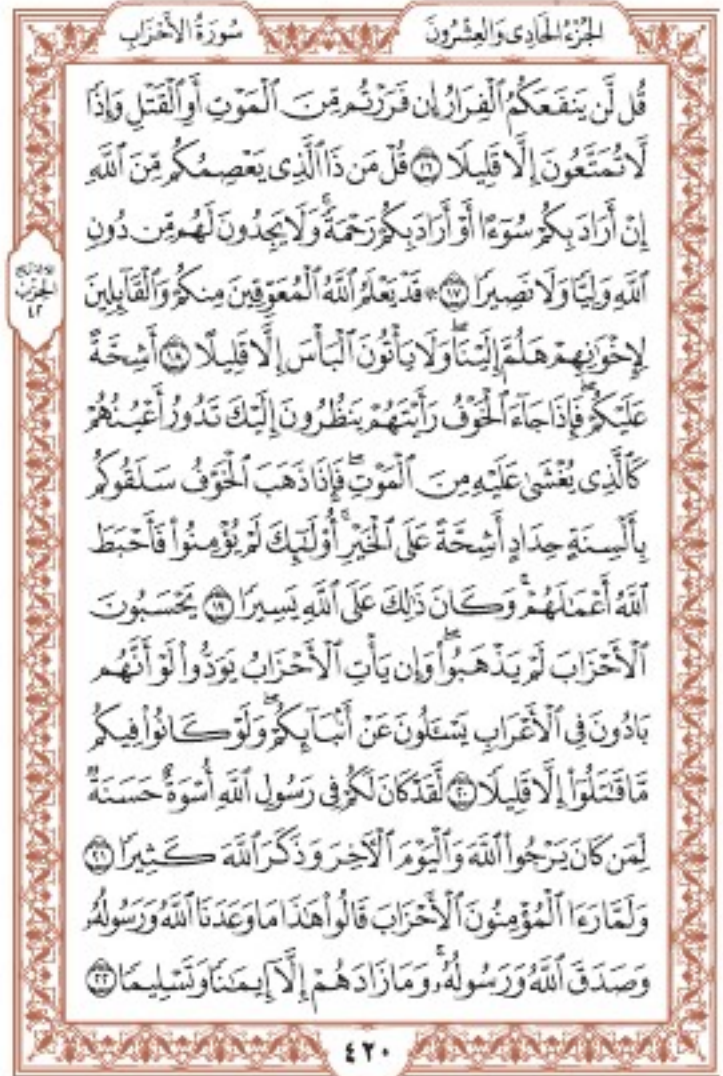 الجُزْءُ الحَادِى وَالعِشْرُونَ
سُورَةُ الأَحْزَابِ
قُل لَّن يَنفَعَكُمُ ٱلْفِرَارُ إِن فَرَرْتُم مِّنَ ٱلْمَوْتِ أَوِ ٱلْقَتْلِ وَإِذًا
لَّا تُمَتَّعُونَ إِلَّا قَلِيلًا ١٦ قُلْ مَن ذَا ٱلَّذِى يَعْصِمُكُم مِّنَ ٱللَّهِ
إِنْ أَرَادَ بِكُمْ سُوٓءًا أَوْ أَرَادَ بِكُمْ رَحْمَةً ۚ وَلَا يَجِدُونَ لَهُم مِّن دُونِ
ٱللَّهِ وَلِيًّا وَلَا نَصِيرًا ١٧ ۞ قَدْ يَعْلَمُ ٱللَّهُ ٱلْمُعَوِّقِينَ مِنكُمْ وَٱلْقَآئِلِينَ
لِإِخْوَٰنِهِمْ هَلُمَّ إِلَيْنَا ۖ وَلَا يَأْتُونَ ٱلْبَأْسَ إِلَّا قَلِيلًا ١٨ أَشِحَّةً
عَلَيْكُمْ ۖ فَإِذَا جَآءَ ٱلْخَوْفُ رَأَيْتَهُمْ يَنظُرُونَ إِلَيْكَ تَدُورُ أَعْيُنُهُمْ
كَٱلَّذِى يُغْشَىٰ عَلَيْهِ مِنَ ٱلْمَوْتِ ۖ فَإِذَا ذَهَبَ ٱلْخَوْفُ سَلَقُوكُم
بِأَلْسِنَةٍ حِدَادٍ أَشِحَّةً عَلَى ٱلْخَيْرِ ۚ أُو۟لَٰٓئِكَ لَمْ يُؤْمِنُوا۟ فَأَحْبَطَ
ٱللَّهُ أَعْمَٰلَهُمْ ۚ وَكَانَ ذَٰلِكَ عَلَى ٱللَّهِ يَسِيرًا ١٩ يَحْسَبُونَ
ٱلْأَحْزَابَ لَمْ يَذْهَبُوا۟ ۖ وَإِن يَأْتِ ٱلْأَحْزَابُ يَوَدُّوا۟ لَوْ أَنَّهُم
بَادُونَ فِى ٱلْأَعْرَابِ يَسْـَٔلُونَ عَنْ أَنۢبَآئِكُمْ ۖ وَلَوْ كَانُوا۟ فِيكُم
مَّا قَٰتَلُوٓا۟ إِلَّا قَلِيلًا ٢٠ لَّقَدْ كَانَ لَكُمْ فِى رَسُولِ ٱللَّهِ أُسْوَةٌ حَسَنَةٌ
لِّمَن كَانَ يَرْجُوا۟ ٱللَّهَ وَٱلْيَوْمَ ٱلْءَاخِرَ وَذَكَرَ ٱللَّهَ كَثِيرًا ٢١
وَلَمَّا رَءَا ٱلْمُؤْمِنُونَ ٱلْأَحْزَابَ قَالُوا۟ هَٰذَا مَا وَعَدَنَا ٱللَّهُ وَرَسُولُهُۥ
وَصَدَقَ ٱللَّهُ وَرَسُولُهُۥ ۚ وَمَا زَادَهُمْ إِلَّآ إِيمَٰنًا وَتَسْلِيمًا ٢٢
الحِزْب
٤٢
٤٢٠